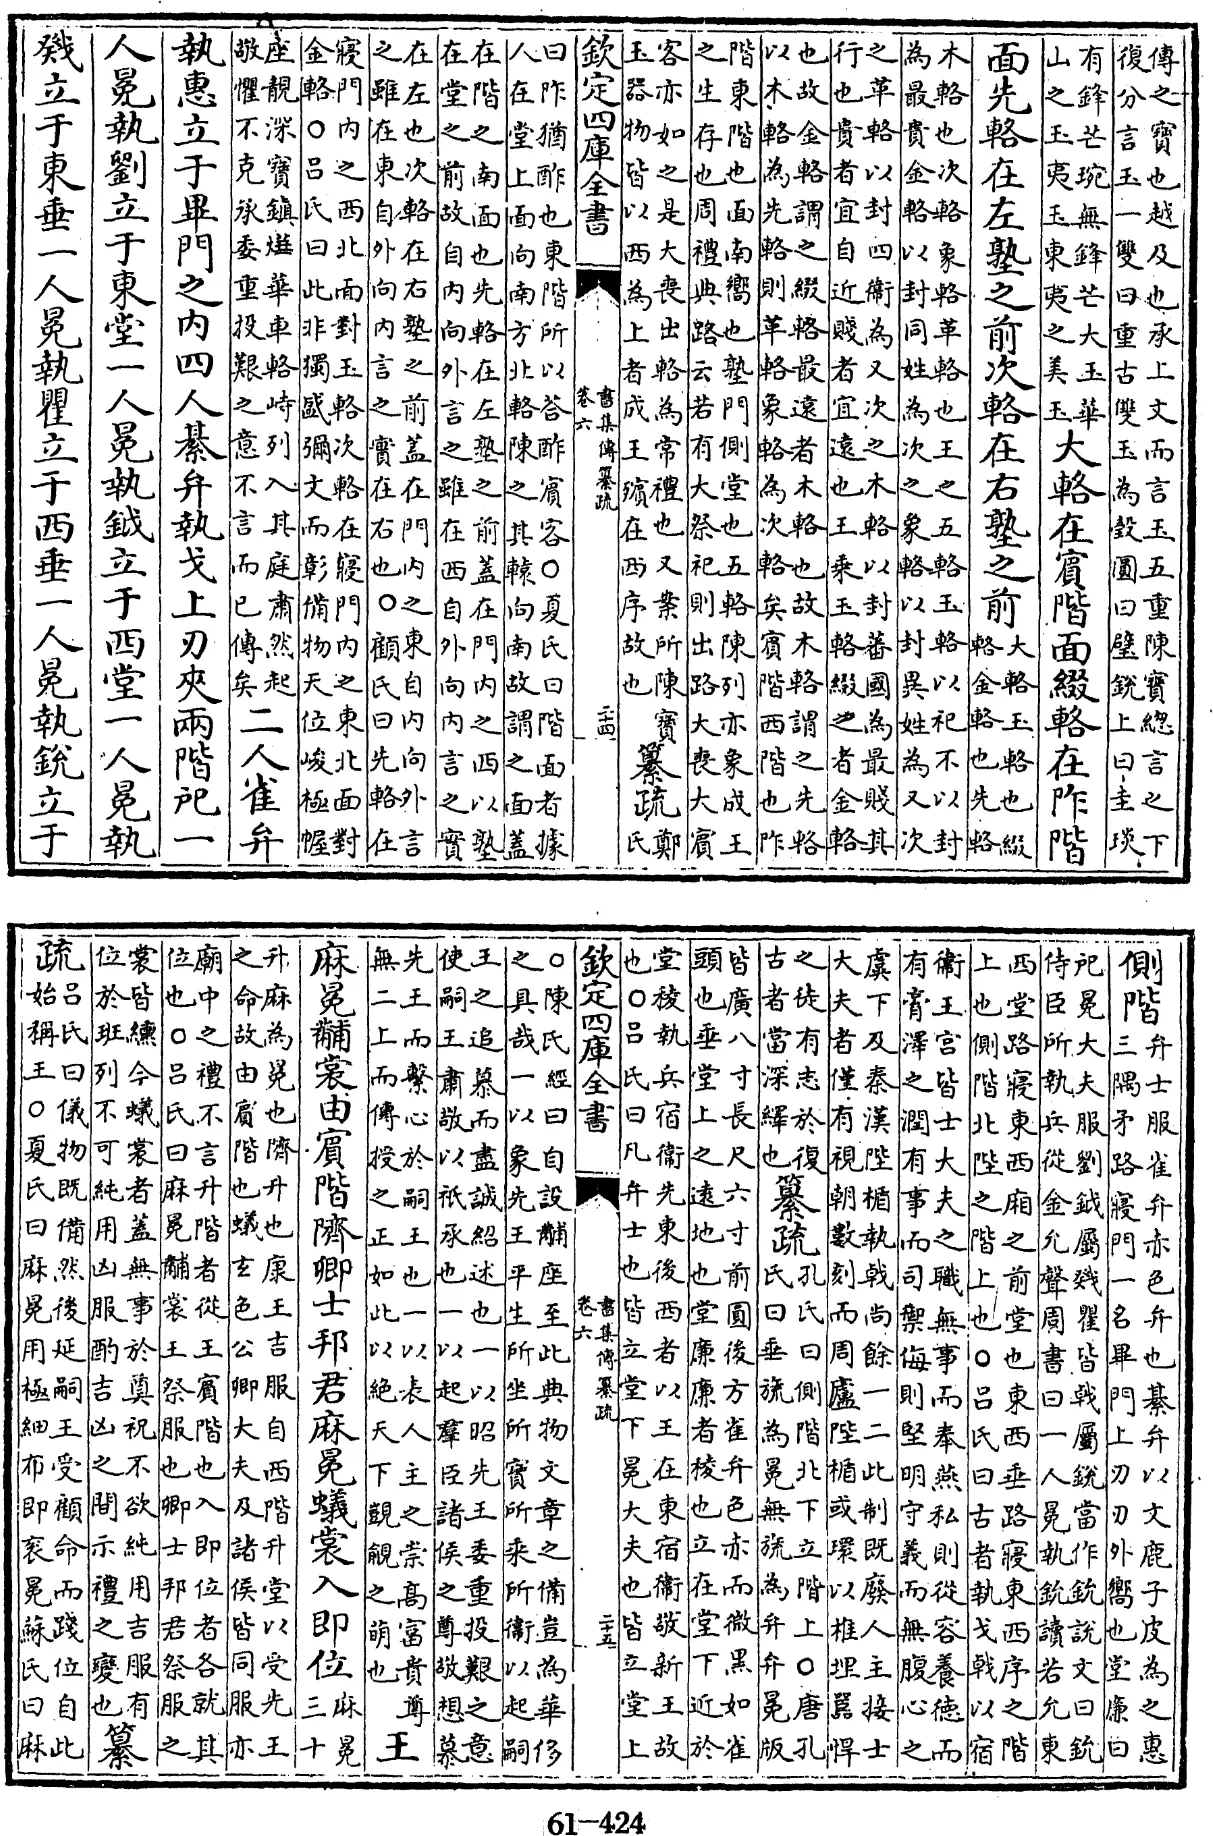 傳之寶也越及也承上文而言玉五重陳寶緫言之下
復分言玉一雙曰重古雙玉為瑴圓曰璧銳上曰圭琰
有鋒芒琬無鋒芒大玉華
山之玉夷玉東夷之美玉
大輅在賓階面綴輅在阼階
面先輅在左塾之前次輅在右塾之前
大輅玉輅也綴
輅金輅也先輅
木輅也次輅象輅革輅也王之五輅玉輅以祀不以封
為最貴金輅以封同姓為次之象輅以封異姓為又次
之革輅以封四衛為又次之木輅以封蕃國為最賤其
行也貴者宜自近賤者宜遠也王乘玉輅綴之者金輅
也故金輅謂之綴輅最遠者木輅也故木輅謂之先輅
以木輅為先輅則革輅象輅為次輅矣賓階西階也阼
階東階也面南嚮也塾門側堂也五輅陳列亦象成王
之生存也周禮典路云若有大祭祀則出路大喪大賓
客亦如之是大喪出輅為常禮也又案所陳寶
玉器物皆以西為上者成王殯在西序故也
纂疏
鄭
氏
欽定四庫全書
書集傳纂疏
卷六
二十四
曰阼猶酢也東階所以答酢賓客〇夏氏曰階面者據
人在堂上面向南方北輅陳之其轅向南故謂之面蓋
在階之南面也先輅在左塾之前蓋在門内之西以塾
在堂之前故自内向外言之雖在西自外向内言之實
在左也次輅在右塾之前蓋在門内之東自内向外言
之雖在東自外向内言之實在右也〇顧氏曰先輅在
寢門内之西北面對玉輅次輅在寢門内之東北面對
金輅〇呂氏曰此非獨盛彌文而彰備物天位峻極幄
座靚深寶鎮爓華車輅峙列入其庭肅然起
敬懼不克承委重投艱之意不言而已傳矣
二人雀弁
執惠立于畢門之内四人綦弁執戈上刃夾兩階戺一
人冕執劉立于東堂一人冕執鉞立于西堂一人冕執
戣立于東垂一人冕執瞿立于西垂一人冕執銳立于
側階
弁士服雀弁赤色弁也綦弁以文鹿子皮為之惠
三隅矛路寢門一名畢門上刃刃外嚮也堂廉曰
戺冕大夫服劉鉞屬戣瞿皆戟屬銳當作鈗說文曰鈗
侍臣所執兵從金允聲周書曰一人冕執鈗讀若允東
西堂路寢東西廂之前堂也東西垂路寢東西序之階
上也側階北陛之階上也〇呂氏曰古者執戈戟以宿
衛王宮皆士大夫之職無事而奉燕私則從容養德而
有膏澤之潤有事而司禦侮則堅明守義而無腹心之
虞下及秦漢陛楯執戟尚餘一二此制既廢人主接士
大夫者僅有視朝數刻而周廬陛楯或環以椎埋嚚悍
之徒有志於復
古者當深繹也
纂疏
孔氏曰側階北下立階上〇唐孔
氏曰垂旒為冕無旒為弁弁冕版
皆廣八寸長尺六寸前圓後方雀弁色赤而微黑如雀
頭也垂堂上之遠地也堂廉廉者稜也立在堂下近於
堂稜執兵宿衛先東後西者以王在東宿衛敬新王故
也〇呂氏曰凡弁士也皆立堂下冕大夫也皆立堂上
欽定四庫全書
書集傳纂疏
卷六
二十五
〇陳氏經曰自設黼座至此典物文章之備豈為華侈
之具哉一以象先王平生所坐所寶所乘所衛以起嗣
王之追慕而盡誠紹述也一以昭先王委重投艱之意
使嗣王肅敬以祇承也一以起羣臣諸侯之尊敬想慕
先王而繫心於嗣王也一以表人主之崇高富貴尊
無二上而傳授之正如此以絶天下覬覦之萌也
王
麻冕黼裳由賓階隮卿士邦君麻冕蟻裳入即位
麻冕
三十
升麻為冕也隮升也康王吉服自西階升堂以受先王
之命故由賓階也蟻玄色公卿大夫及諸侯皆同服亦
廟中之禮不言升階者從王賓階也入即位者各就其
位也〇呂氏曰麻冕黼裳王祭服也卿士邦君祭服之
裳皆纁今蟻裳者蓋無事於奠祝不欲純用吉服有
位於班列不可純用凶服酌吉凶之間示禮之變也
纂
疏
呂氏曰儀物既備然後延嗣王受顧命而踐位自此
始稱王〇夏氏曰麻冕用極細布即衮冕蘇氏曰麻
61-424